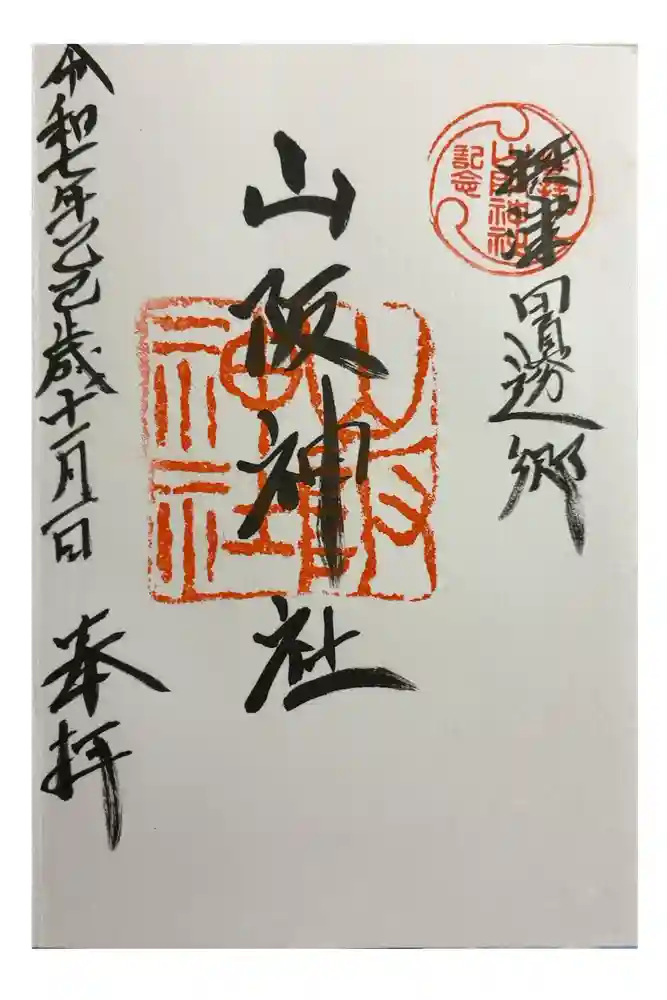 摂津田邊郷
山阪神社
令和七年乙巳歳十一月一日 奉拝
山阪神社
参拝
山阪神社
記念